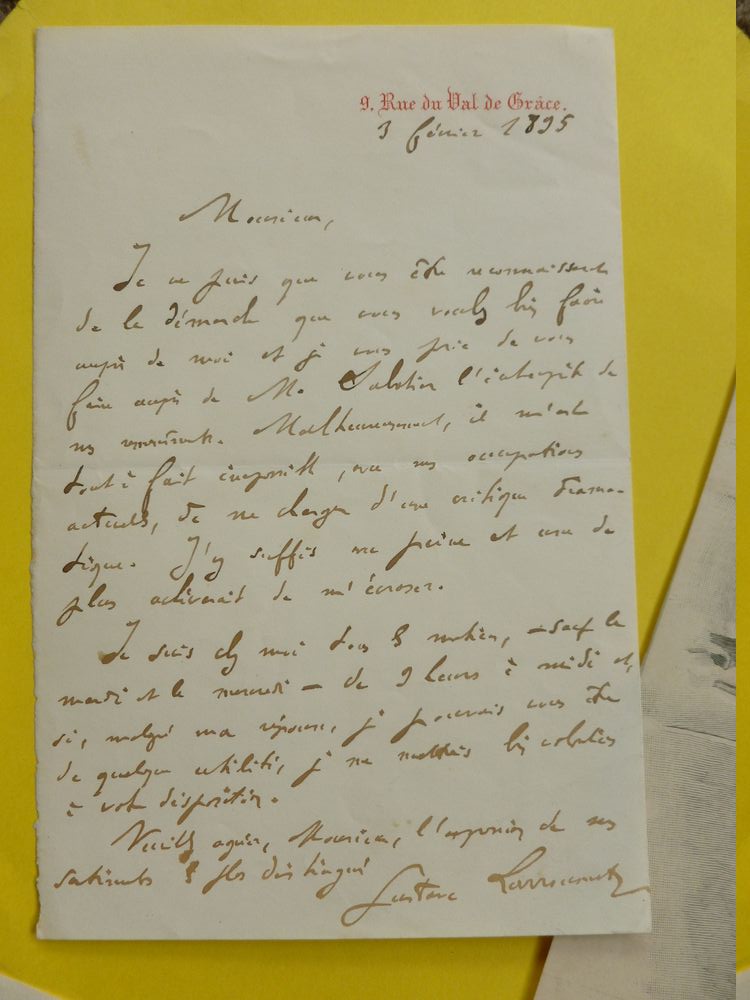 9. Rue du Val de Grâce.
3 février 1895
Monsieur,
Je ne puis que vous être reconnaissant
de la démarche que vous voulez bien faire
auprès de moi et je vous prie de vous
faire auprès de M. Sabatier l'interprète de
mes remerciements. Malheureusement, il m'est
tout à fait impossible, vu mes occupations
actuelles, de me charger d'une critique drama-
tique. J'y suffis à peine et une de
plus achèverait de m'écraser.
Je suis chez moi tous les matins, – sauf le
mardi et le mercredi – de 9 heures à midi et,
si, malgré ma réponse, je pouvais vous être
de quelque utilité, je me mettrais bien volontiers
à votre disposition.
Veuillez agréer, Monsieur, l'expression de mes
sentiments les plus distingués
Gustave Larroumet